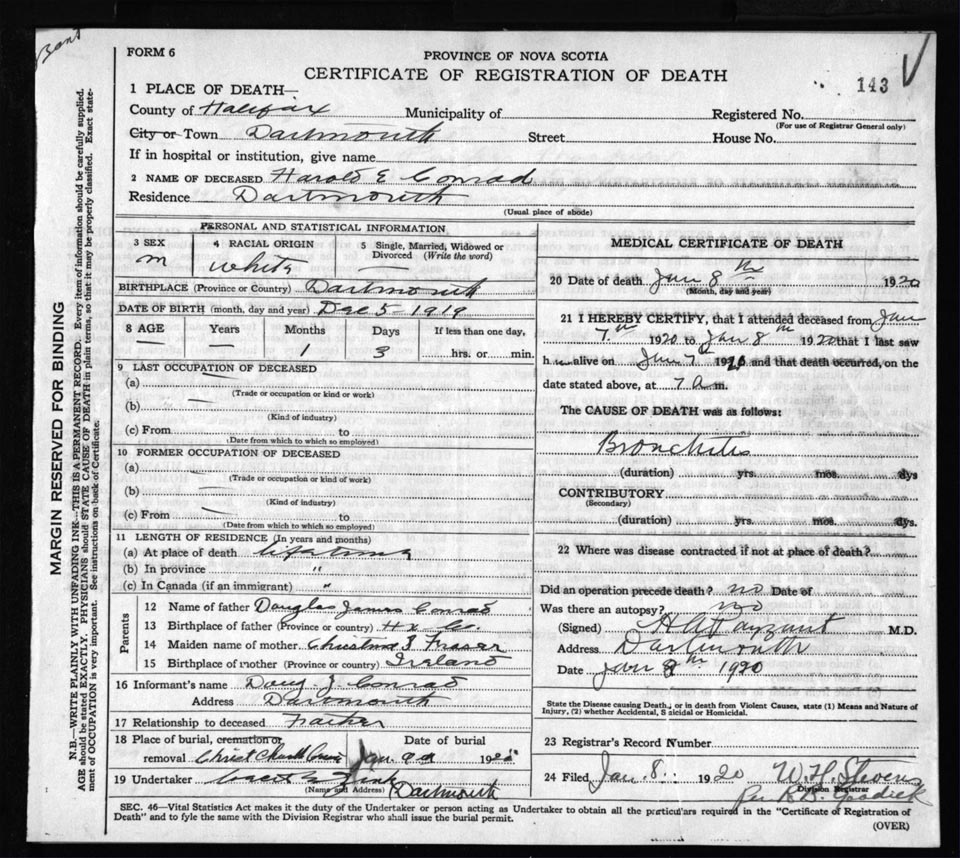 Bant
FORM 6
PROVINCE OF NOVA SCOTIA
CERTIFICATE OF REGISTRATION OF DEATH
143
1 PLACE OF DEATH—
County of Halifax Municipality of Registered No.
(For use of Registrar General only)
City or Town Dartmouth Street House No.
If in hospital or institution, give name
2 NAME OF DECEASED Harold E Conrad
Residence Dartmouth
(Usual place of abode)
PERSONAL AND STATISTICAL INFORMATION
3 SEX 4 RACIAL ORIGIN 5 Single, Married, Widowed or
Divorced (Write the word)
m white —
BIRTHPLACE (Province or Country) Dartmouth
DATE OF BIRTH (month, day and year) Dec 5 - 1919
8 AGE Years Months Days If less than one day,
— — 1 3 hrs. or min.
9 LAST OCCUPATION OF DECEASED
(a)
(Trade or occupation or kind or work)
(b)
(Kind of industry)
(c) From to
(Date from which to which so employed)
10 FORMER OCCUPATION OF DECEASED
(a)
(Trade or occupation or kind of work)
(b)
(Kind of industry)
(c) From to
(Date from which to which so employed)
11 LENGTH OF RESIDENCE (In years and months)
(a) At place of death lifetime
(b) In province "
(c) In Canada (if an immigrant) "
Parents
12 Name of father Douglas James Conrad
13 Birthplace of father (Province or country) Hx Co.
14 Maiden name of mother Christina J Fraser
15 Birthplace of mother (Province or country) Ireland
16 Informant's name Doug. J. Conrad
Address Dartmouth
17 Relationship to deceased Father
18 Place of burial, cremation or Date of burial
removal Christ Church Jan 192
19 Undertaker
(Name and Address) Dartmouth
MEDICAL CERTIFICATE OF DEATH
20 Date of death Jan 8th 1920
(Month, day and year)
21 I HEREBY CERTIFY, that I attended deceased from Jan
7th 1920 to Jan 8th 1920 that I last saw
h alive on Jan 7th 1920 and that death occurred, on the
date stated above, at 7 a m.
The CAUSE OF DEATH was as follows:
Bronchitis
(duration) yrs. mos. dys
CONTRIBUTORY
(Secondary)
(duration) yrs. mos. dys.
22 Where was disease contracted if not at place of death?
Did an operation precede death? no Date of
Was there an autopsy? no
(Signed) H A Payzant M.D.
Address Dartmouth
Date Jan 8th 1920
State the Disease causing Death, or in death from Violent Causes, state (1) Means and Nature of
Injury, (2) whether Accidental, Suicidal or Homicidal.
23 Registrar's Record Number
24 Filed Jan. 8. 1920 W. H. Stevens
Division Registrar
Per R. D. Goodick
SEC. 46—Vital Statistics Act makes it the duty of the Undertaker or person acting as Undertaker to obtain all the particulars required in the "Certificate of Registration of
Death" and to fyle the same with the Division Registrar who shall issue the burial permit.
(OVER)
MARGIN RESERVED FOR BINDING
N.B.—WRITE PLAINLY WITH UNFADING INK—THIS IS A PERMANENT RECORD. Every item of information should be carefully supplied.
AGE should be stated EXACTLY. PHYSICIANS should STATE CAUSE OF DEATH in plain terms, so that it may be properly classified. Exact state-
ment of OCCUPATION is very important. See instructions on back of Certificate.